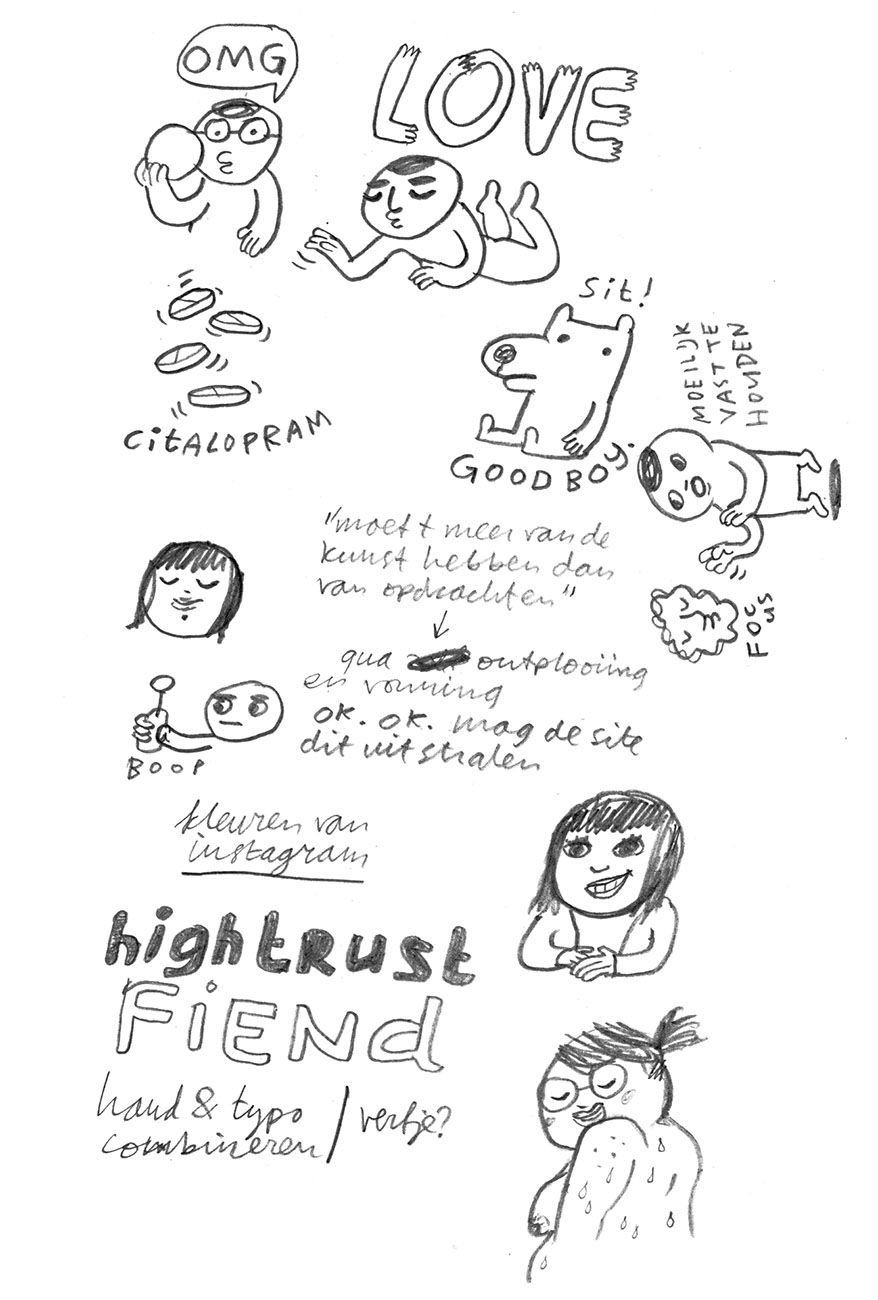 OMG
LOVE
Sit!
MOEILIJK
VAST TE
HOUDEN
CitALOPRAM
GOOD BOY.
"moet t meer van de
kunst hebben dan
van opdrachten"
FOC
us
qua ontplooiing
en vorming
OK. OK. mag de site
dit uitstralen
BOOP
kleuren van
instagram
hightRust
FiENd
hand & typo / verfje?
combineren